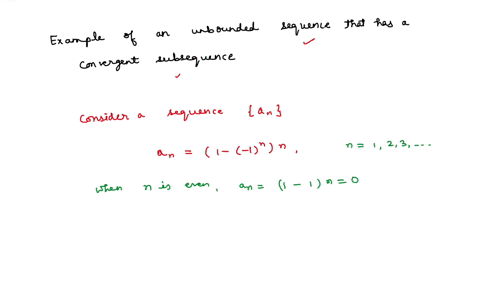 Example of an unbounded sequence that has a
convergent subsequence
Consider a sequence {aₙ}
aₙ = (1 - (-1)ⁿ) n, n = 1, 2, 3, ....
when n is even, aₙ = (1 - 1) n = 0